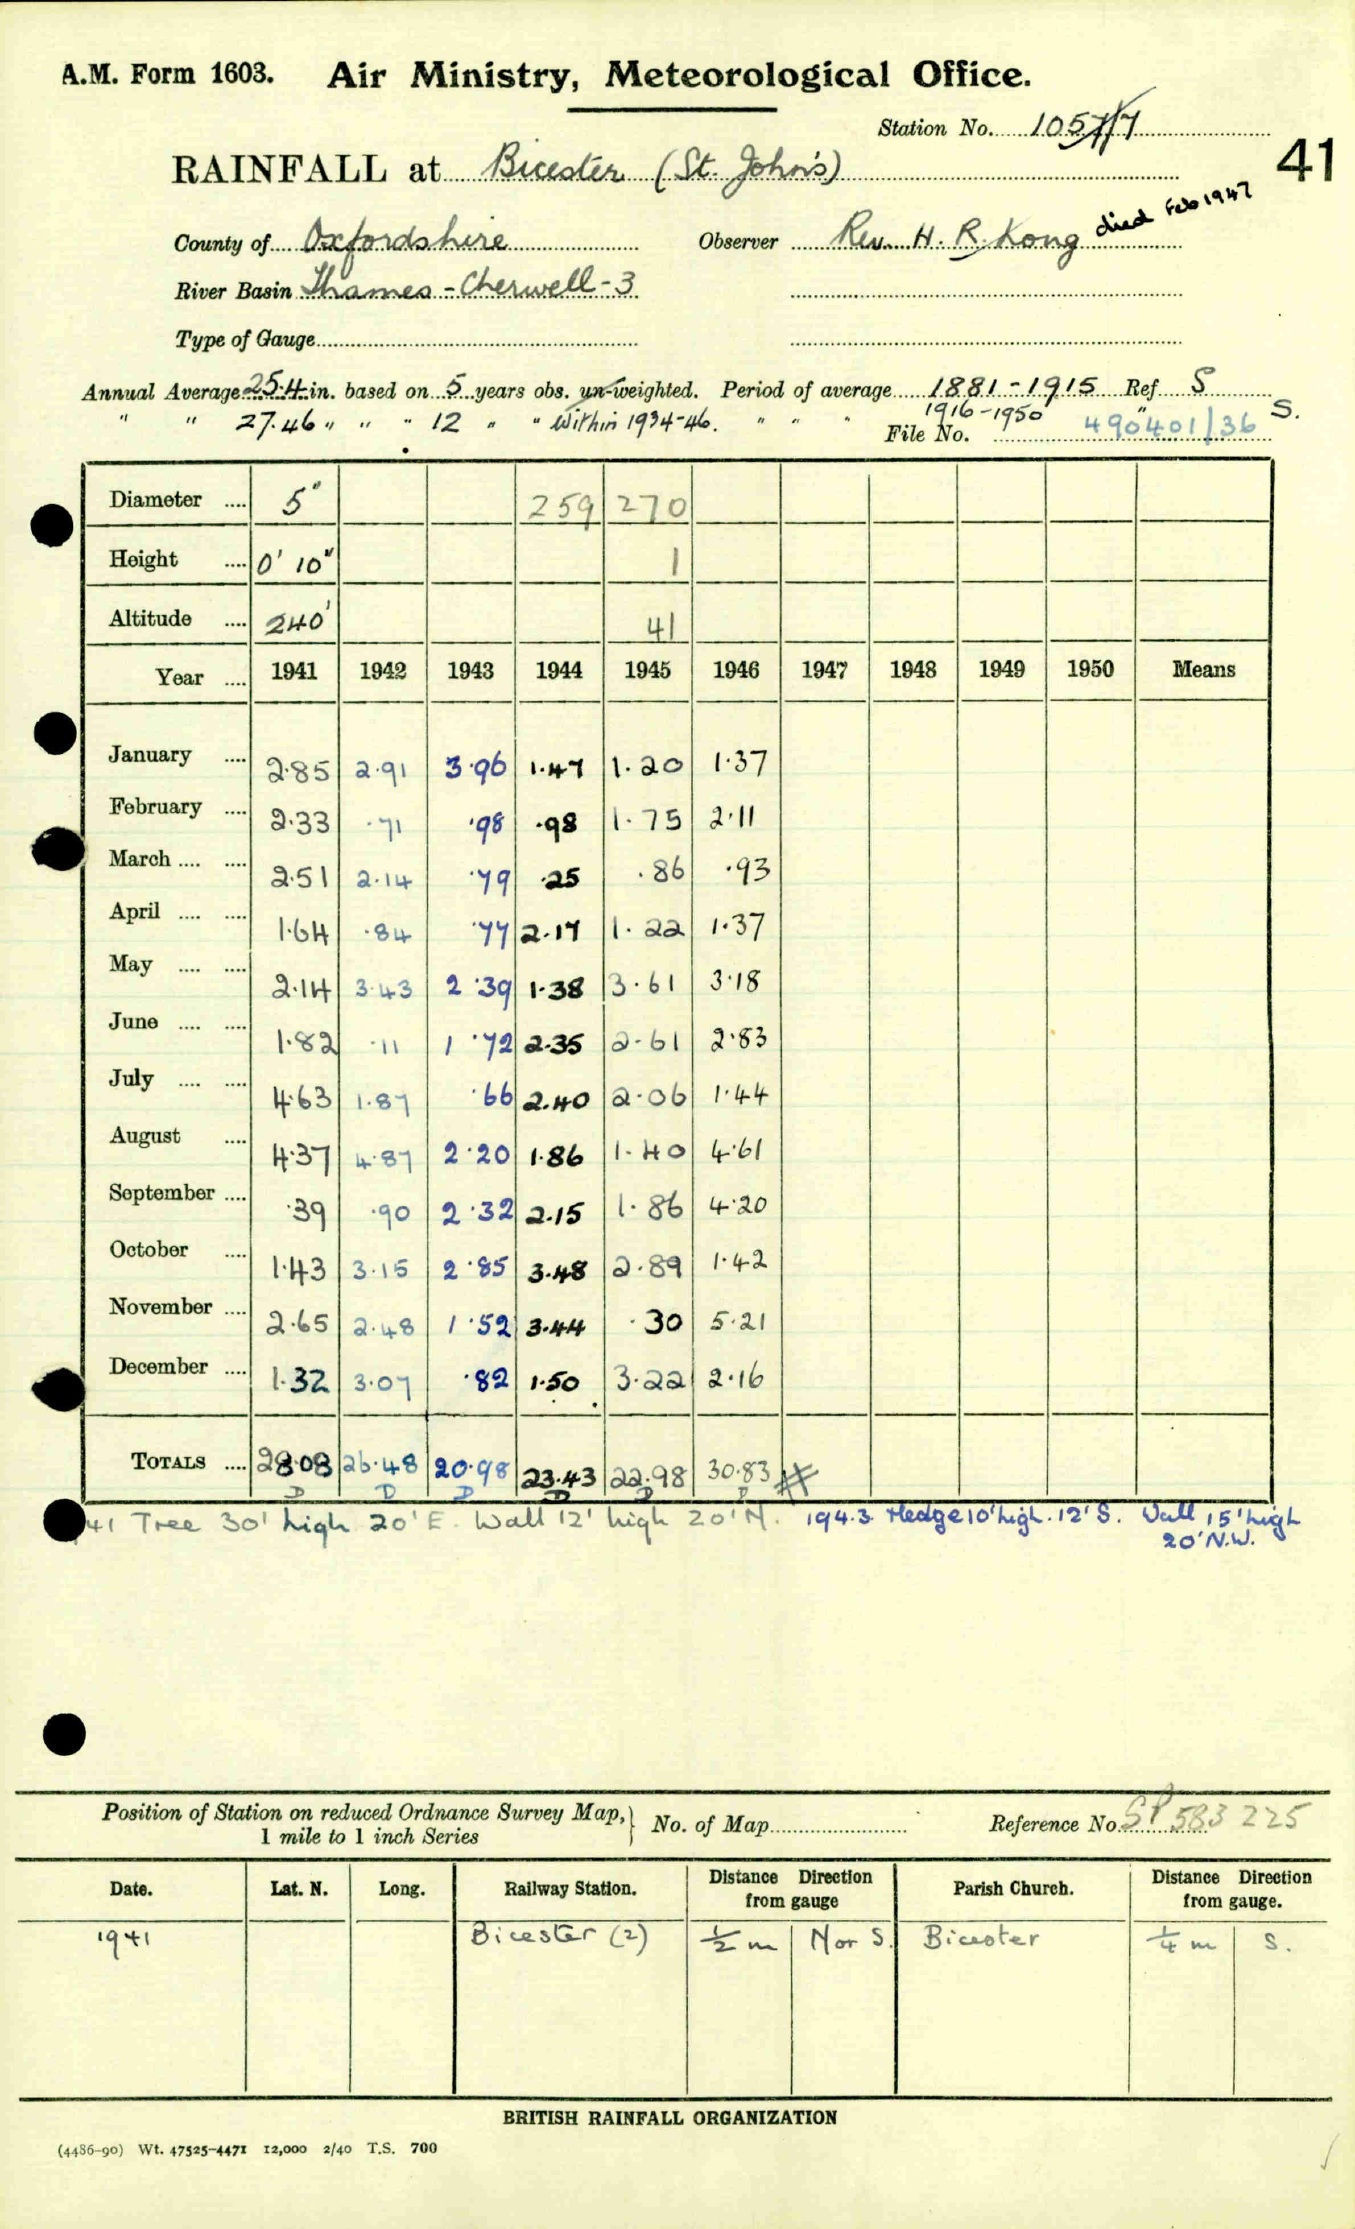 A.M. Form 1603. Air Ministry, Meteorological Office.
Station No. 1057/7
41
RAINFALL at Bicester (St. John's)
County of Oxfordshire Observer Rev. H. R. Kong died Feb 1947
River Basin Thames - Cherwell - 3
Type of Gauge
Annual Average 25.4 in. based on 5 years obs. un-weighted. Period of average 1881-1915 Ref S
" " 27.46 " " " 12 " " Within 1934-46. " " " 1916-1950 " S.
File No. 490401/36
Diameter .... 5" 259 270
Height .... 0' 10" 1
Altitude .... 240' 41
Year .... 1941 1942 1943 1944 1945 1946 1947 1948 1949 1950 Means
January .... 2.85 2.91 3.96 1.47 1.20 1.37
February .... 2.33 .71 .98 .98 1.75 2.11
March .... .... 2.51 2.14 .79 .25 .86 .93
April .... .... 1.64 .84 .77 2.17 1.22 1.37
May .... .... 2.14 3.43 2.39 1.38 3.61 3.18
June .... .... 1.82 .11 1.72 2.35 2.61 2.83
July .... .... 4.63 1.87 .66 2.40 2.06 1.44
August .... 4.37 4.87 2.20 1.86 1.40 4.61
September .... .39 .90 2.32 2.15 1.86 4.20
October .... 1.43 3.15 2.85 3.48 2.89 1.42
November .... 2.65 2.48 1.52 3.44 .30 5.21
December .... 1.32 3.07 .82 1.50 3.22 2.16
TOTALS .... 28.08 26.48 20.98 23.43 22.98 30.83
D D D D D D
41 Tree 30' high 20' E. Wall 12' high 20' N. 1943 Hedge 10' high. 12' S. Wall 15' high
20' N.W.
Position of Station on reduced Ordnance Survey Map, 1 mile to 1 inch Series } No. of Map Reference No. SP 583 225
Date. Lat. N. Long. Railway Station. Distance from gauge Direction Parish Church. Distance from gauge. Direction
1941 Bicester (2) 1/2 m N or S. Bicester 1/4 m S.
BRITISH RAINFALL ORGANIZATION
(4486-90) Wt. 47525-4471 12,000 2/40 T.S. 700